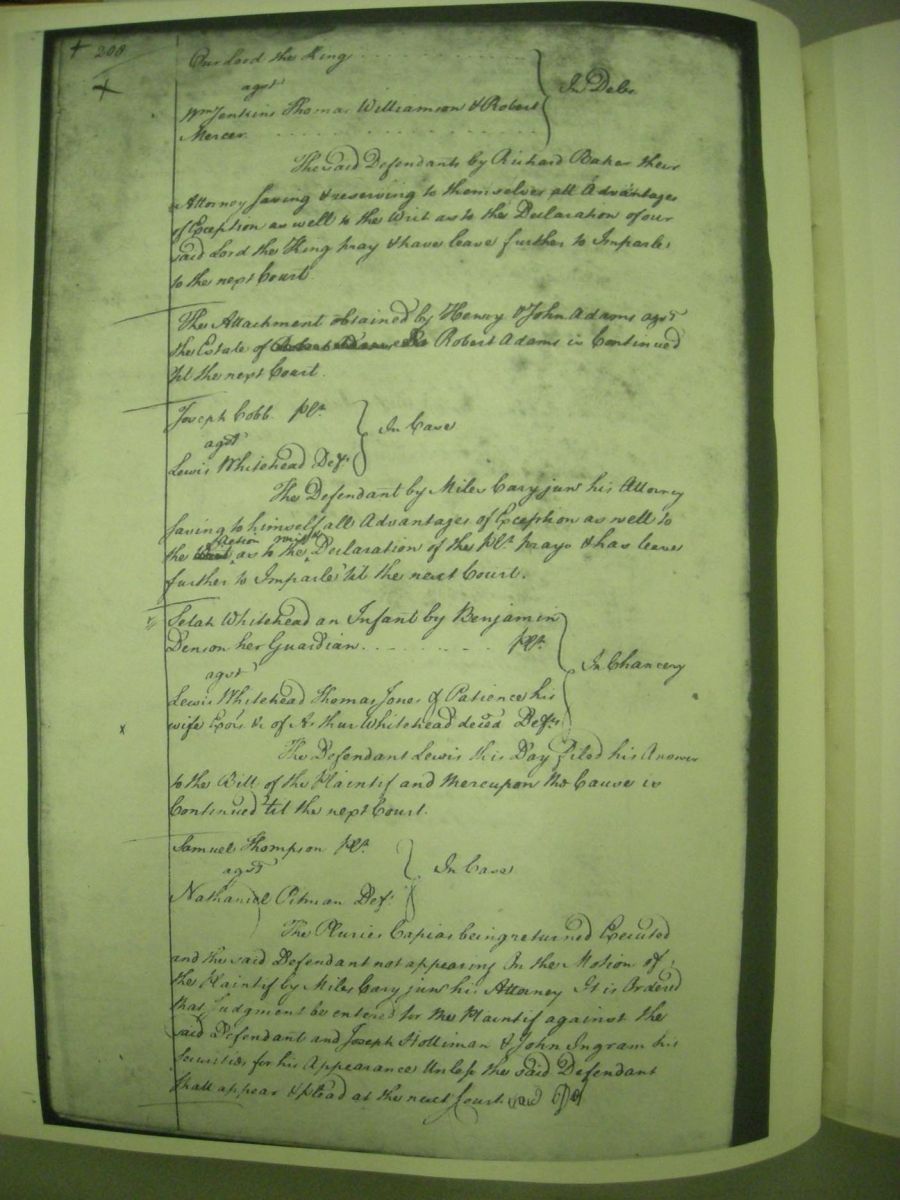 + 208
Our Lord the King
agst
Wm Jenkins Thomas Williamson & Robert
Mercer
In Debt
The said Defendants by Richard Baker their
Attorney Saving & reserving to themselves all Advantages
of Exception as well to the Writ as to the Declaration of our
said Lord the King pray & have leave further to Imparle
to the next Court.
The Attachment obtained by Henry & John Adams agst
the Estate of Robert Adams is Continued
'til the next Court.
Joseph Cobb Plt.
agst
Lewis Whitehead Deft.
In Case
The Defendant by Miles Cary junr his Attorney
Saving to himself all Advantages of Exception as well to
the Action as to the Declaration of the Plt. prays & has leave
further to Imparle 'til the next Court.
Selah Whitehead an Infant by Benjamin
Denson her Guardian Plt.
agst
Lewis Whitehead Thomas Jones & Patience his
wife Exors &c of Arthur Whitehead deced Defts
In Chancery
The Defendant Lewis this Day filed his Answer
to the Bill of the Plaintif and thereupon the Cause is
Continued 'til the next Court.
Samuel Thompson Plt.
agst
Nathaniel Pitman Deft
In Case
The Pluries Capias being returned Executed
and the said Defendant not appearing On the Motion of
the Plaintif by Miles Cary junr his Attorney It is Ordered
that Judgment be entered for the Plaintif against the
said Defendant and Joseph Holliman & John Ingram his
Securities for his Appearance Unless the said Defendant
shall appear & plead at the next Court.